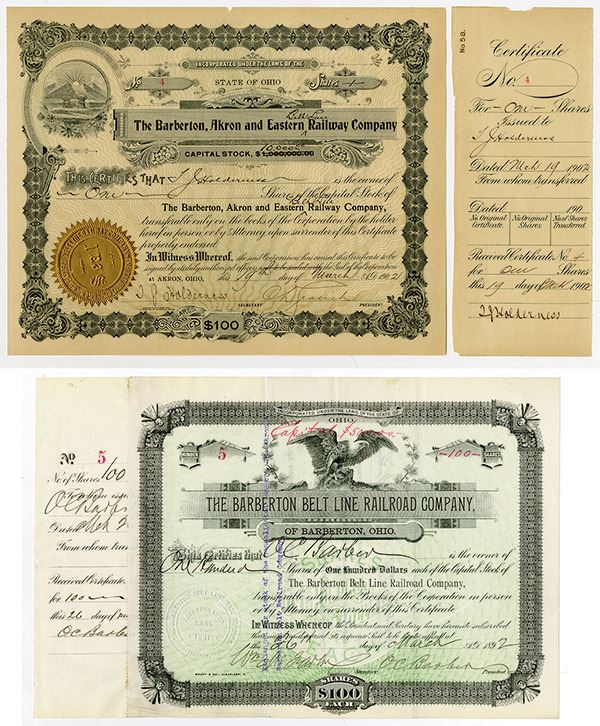 INCORPORATED UNDER THE LAWS OF THE
No 4 STATE OF OHIO Shares -1-
Belt Line
The Barberton, Akron and Eastern Railway Company
10,000.00
CAPITAL STOCK, $
THIS CERTIFIES THAT T J Holderness is the owner of
One Shares of the Capital Stock of
Belt Line
The Barberton, Akron and Eastern Railway Company,
transferable only on the books of the Corporation by the holder
hereof in person or by Attorney upon surrender of this Certificate
properly endorsed
In Witness Whereof, the said Corporation has caused this Certificate to be
signed by its duly authorized officers and to be sealed with the Seal of the Corporation
at AKRON, OHIO, this 19 day of March A.D. 1902
T J Holderness
SECRETARY PRESIDENT
SHARES
$100
No. 58.
Certificate
No. 4
For -One- Shares
Issued to
T J Holderness
Dated Mch 19 1902
From whom transferred
Dated 190
No. Original Certificate. No. Original Shares. No. of Shares Transferred.
Received Certificate No 4
for One Shares
this 19 day of Mch 1902
T J Holderness
No 5
No. of Shares 100
O C Barber
Dated Mch 2
From whom tran
Received Certificate
for 100
this 26 day of
O C Barber
INCORPORATED UNDER THE LAWS OF THE STATE OF
OHIO.
Capital $50,000
5
-100-
THE BARBERTON BELT LINE RAILROAD COMPANY,
OF BARBERTON, OHIO.
This Certifies that O C Barber is the owner of
One Hundred Shares of One Hundred Dollars each of the Capital Stock of
The Barberton Belt Line Railroad Company,
transferable only on the Books of the Corporation in person
or by Attorney on surrender of this Certificate
IN WITNESS WHEREOF the President and Secretary have hereunto subscribed
their names and caused its corporate Seal to be hereto affixed at
26 day of March 1892
O C Barber
Secretary President
SHARES
$100
EACH